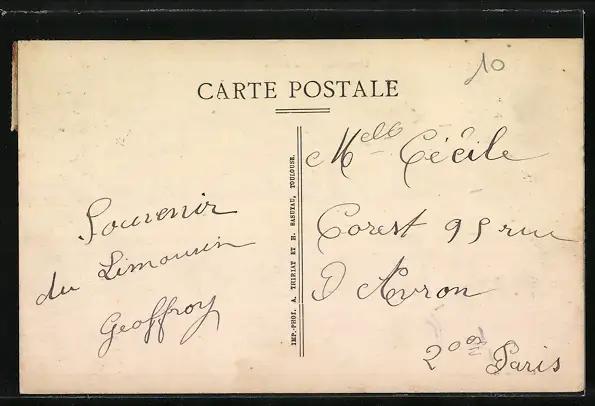 10
CARTE POSTALE
Melle Cécile
Souvenir
Corest 95 rue
du Limousin
D Avron
Geoffroy
Paris
IMP.-PHOT. A. THIRIAT ET H. BASUYAU, TOULOUSE.